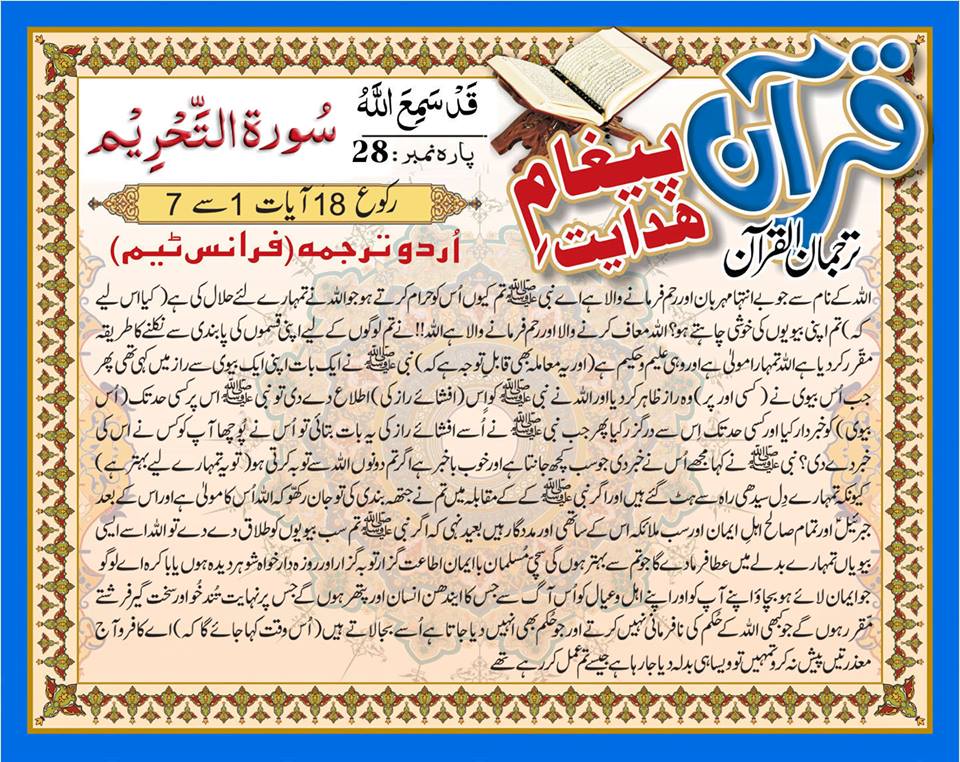 قرآن
پیغامِ
ھدایت
ترجمان القرآن
قَدْ سَمِعَ اللّٰهُ
پارہ نمبر: 28
سُورۃ التَّحْرِیْم
رکوع 18 آیات 1 سے 7
اُردو ترجمہ (فرانس ٹیم)
اللہ کے نام سے جو بے انتہا مہربان اور رحم فرمانے والا ہے اے نبی ﷺ تم کیوں اُس کو حرام کرتے ہو جو اللہ نے تمہارے لئے حلال کی ہے (کیا اس لیے
کہ) تم اپنی بیویوں کی خوشی چاہتے ہو؟ اللہ معاف کرنے والا اور رحم فرمانے والا ہے اللہ!! نے تم لوگوں کے لیے اپنی قسموں کی پابندی سے نکلنے کا طریقہ
مقرر کر دیا ہے اللہ تمہارا مولیٰ ہے اور وہی علیم و حکیم ہے (اور یہ معاملہ بھی قابلِ توجہ ہے کہ) نبی ﷺ نے ایک بات اپنی ایک بیوی سے راز میں کہی تھی پھر
جب اُس بیوی نے (کسی اور پر) وہ راز ظاہر کر دیا اور اللہ نے نبی ﷺ کو اس (افشائے راز کی) اطلاع دے دی تو نبی ﷺ اس پر کسی حد تک (اُس
بیوی) کو خبردار کیا اور کسی حد تک اِس سے درگزر کیا پھر جب نبی ﷺ نے اُسے افشائے راز کی یہ بات بتائی تو اُس نے پُوچھا آپ کو کس نے اس کی
خبر دے دی؟ نبی ﷺ نے کہا مجھے اُس نے خبر دی جو سب کچھ جانتا ہے اور خوب باخبر ہے اگر تم دونوں اللہ سے توبہ کرتی ہو (تو یہ تمہارے لیے بہتر ہے)
کیونکہ تمہارے دِل سیدھی راہ سے ہٹ گئے ہیں اور اگر نبی ﷺ کے کے مقابلہ میں تم نے جتھہ بندی کی تو جان رکھو کہ اللہ اُس کا مولیٰ ہے اور اس کے بعد
جبرئیلؑ اور تمام صالح اہلِ ایمان اور سب ملائکہ اس کے ساتھی اور مددگار ہیں بعید نہی کہ اگر نبی ﷺ تم سب بیویوں کو طلاق دے دے تو اللہ اسے ایسی
بیویاں تمہارے بدلے میں عطا فرما دے گا جو تم سے بہتر ہوں گی سچی مُسلمان با ایمان اطاعت گزار توبہ گزار اور روزہ دار خواہ شوہر دیدہ ہوں یا باکرہ اے لوگو
جو ایمان لائے ہو بچاؤ اپنے آپ کو اور اپنے اہل و عیال کو اُس آگ سے جس کا ایندھن انسان اور پتھر ہوں گے جس پر نہایت تُند خُو اور سخت گیر فرشتے
مقرر ہوں گے جو بھی اللہ کے حُکم کی نافرمانی نہیں کرتے اور جو حُکم بھی انہیں دیا جاتا ہے اُسے بجا لاتے ہیں (اُس وقت کہا جائے گا کہ) اے کافرو آج
معذرتیں پیش نہ کرو تمہیں تو ویسا ہی بدلہ دیا جا رہا ہے جیسے تم عمل کر رہے تھے